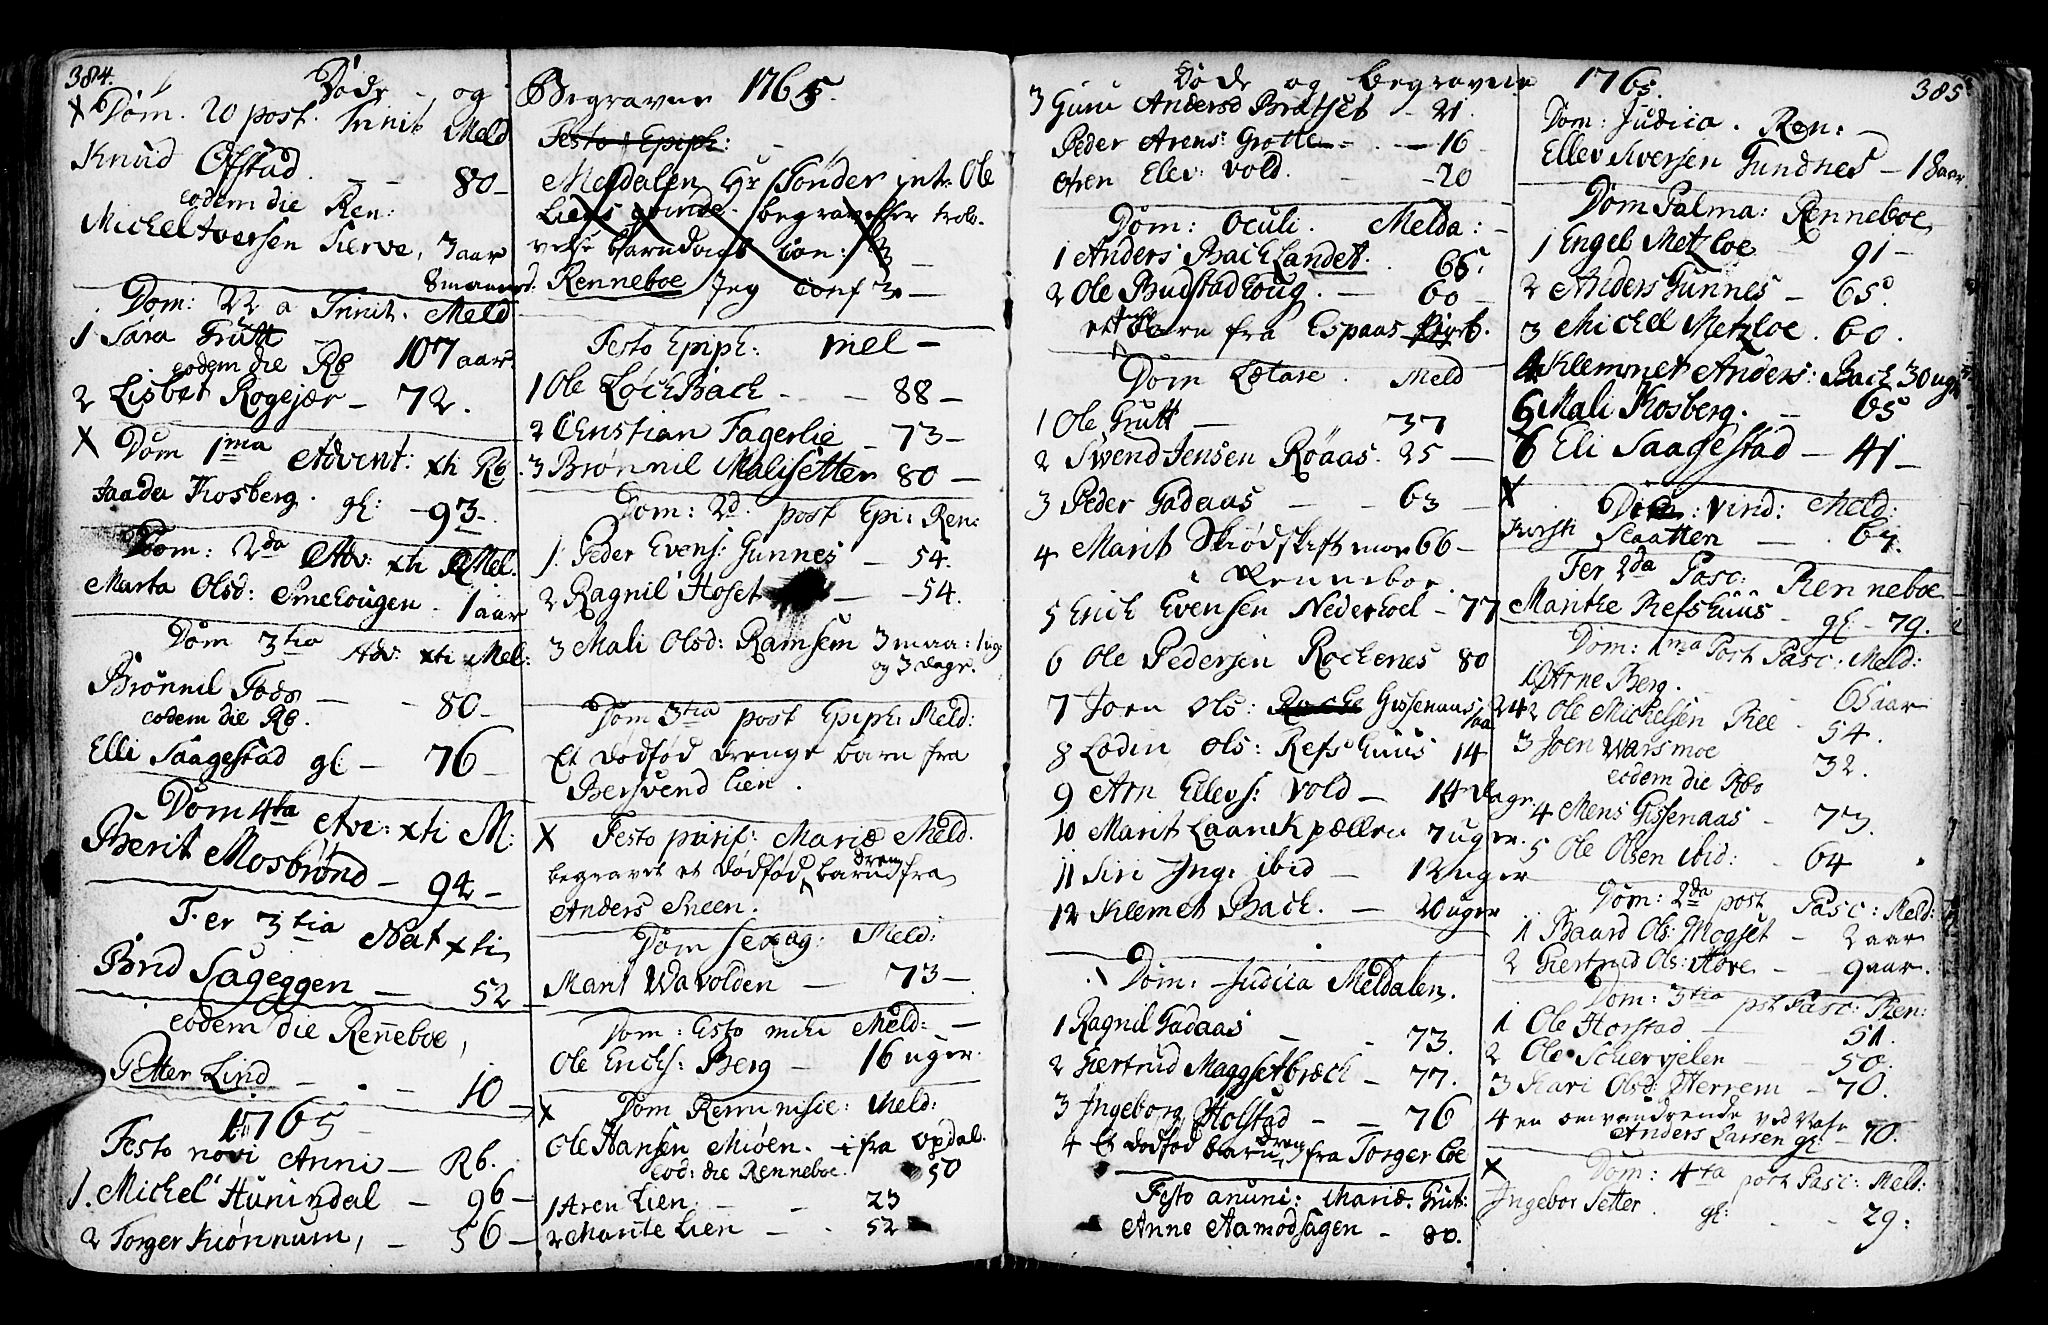 384.
Døde og
X Dom. 20 post. Trinit Meld
Knud Ofstad — — 80 —
eodem die Ren:
Michel Iversen Sierve, 3 aar
8 maaned.
Dom: 22 a Trinit. Meld
1 Sara Grutt — 107 aar.
eodem die Rb
2 Lisbet Rogejær — 72.
X Dom 1ma Advent: xti Rb.
Kosberg. gl: — 93 —.
Dom: 2da Adv: xti Mel.
Marta Olsd: Smehougen — 1 aar
Dom 3tia Adv: xti Mel:
Brønnil Foss — — 80 —
eodem die Rb.
Elli Saagestad gl: — 76 —
Dom 4ta Adv: xti M:
Berit Mosbrønd — 94 —
Fer 3tia Nat xti
Brid Sageggen — 52
eodem die Reñeboe,
Petter Lind — . — 10 —
1765
Festo novi Anni — Rb.
1. Michel Hunindal — 96 —
2 Torger Kiønnum, — 56 —
Begravne 1765.
Festo Epiph: —
Meldalen Hr Sønder int. Ole
Liens qvinde begravelse trol.
velse barndaabs con: 3 —
Renneboe Jeg conf 3 —
Festo Epiph: Mel —
1 Ole Løchbach — — 88 —
2 Christian Fagerlie — 73 —
3 Brønnil Malisetter 80 —
Dom: 2d. post Epi: Ren:
1. Peder Evens: Gunnes — 54.
2 Ragnil Hoset — — 54.
3 Mali Olsd: Ramsem 3 maa: 1 ug
og 3 dage.
Dom 3tia post Epiph: Meld:
Et dødfød drenge barn fra
Bersvend Lien.
X Festo purif: Mariæ Meld.
begravet et dødfød dreng barn fra
Anders Sneen.
Dom sexag: Meld:
Marit Wavolden — 73 —
Dom: Esto mihi Meld: —
Ole Erichs: Berg — 16 uger.
X Dom Reminisce: Meld:
Ole Hansen Miøen. — fra Opdal.
eod: die Renneboe. 50
1 Aren Lien — — 23
2 Marite Lien — . 52
Døde og begravne 1765.
3 Guru Andersd Bratset — 21.
Peder Arens: Grotte — . — 16
Elev: Vold. — — 20
Dom: Oculi. Melda: —
1 Anders Bachlandet. . 66.
2 Ole Budstadhoug. — 60 —
ett barn fra Espaas
Dom Lætare. Meld
1 Ole Grutt — 37
2 Swend Jensen Røaas. 25 —
3 Peder Gadaas — — 63 —
4 Marit Skiødskift mor 66 —
i Renneboe
5 Erich Evensen Nederhoel — 77
6 Ole Pedersen Rochenes 80
7 Joen Ols: Gissenaas 24
8 Lodin Ols: Refshuus 14
9 Arn Ellevs: Vold — 14 dage.
10 Marit Laanchpællen 7 uger.
11 Siri Ing: ibid — 12 uger
12 Klemet Bach. — 20 uger
Dom: Judica Meldalen.
1 Ragnil Gadaas — — 73.
2 Giertrud Maggsetbrech — 77.
3 Ingeborg Holstad — — 76
4 Et dødfød dreng barn fra Torger Loe
Festo anunc: Mariæ. Grut:
Anne Aamodsagen — 80.
385
Dom: Judica. Ren: —
Ellev Siversen Gundnes — 18 aar.
Dom Palma: Renneboe,
1 Engel Metzloe 91 —
2 Anders Gunnes — 65.
3 Michel Metzloe. 60.
4 Klemmet Anders: Bach 30 uger
5 Mali Kosberg. — 65
6 Eli Saagestad — 41 —
X Dom: vind: Meld:
Kirsti Slaatten — . 64.
Fer 2da Pasc: Renneboe
Marithe Refshuus — gl — 79.
Dom: 1ma Post Pasc: Meld:
1 Arne Berg. 65 aar
2 Ole Michelsen Ree — 54.
3 Joen Warsmoe 32.
eodem die Rbo
4 Mens Gissenaas — 73.
5 Ole Olsen ibid: — 64
Dom: 2da post Pasc: Meld:
1 Baard Ols: Mogset — 2 aar
2 Giertrud Ols: Hove — 9 aar.
Dom: 3tia pst Pasc: Ren:
1 Ole Horstad — 51.
2 Ole Schervjelen — 50.
3 Kari Olsd: Herrem — 70.
4 en omvandrende ved Nafn
Anders Larsen gl — 70.
X Dom: 4ta post Pasc: Meld:
Ingebor Setter. gl: — — 29: